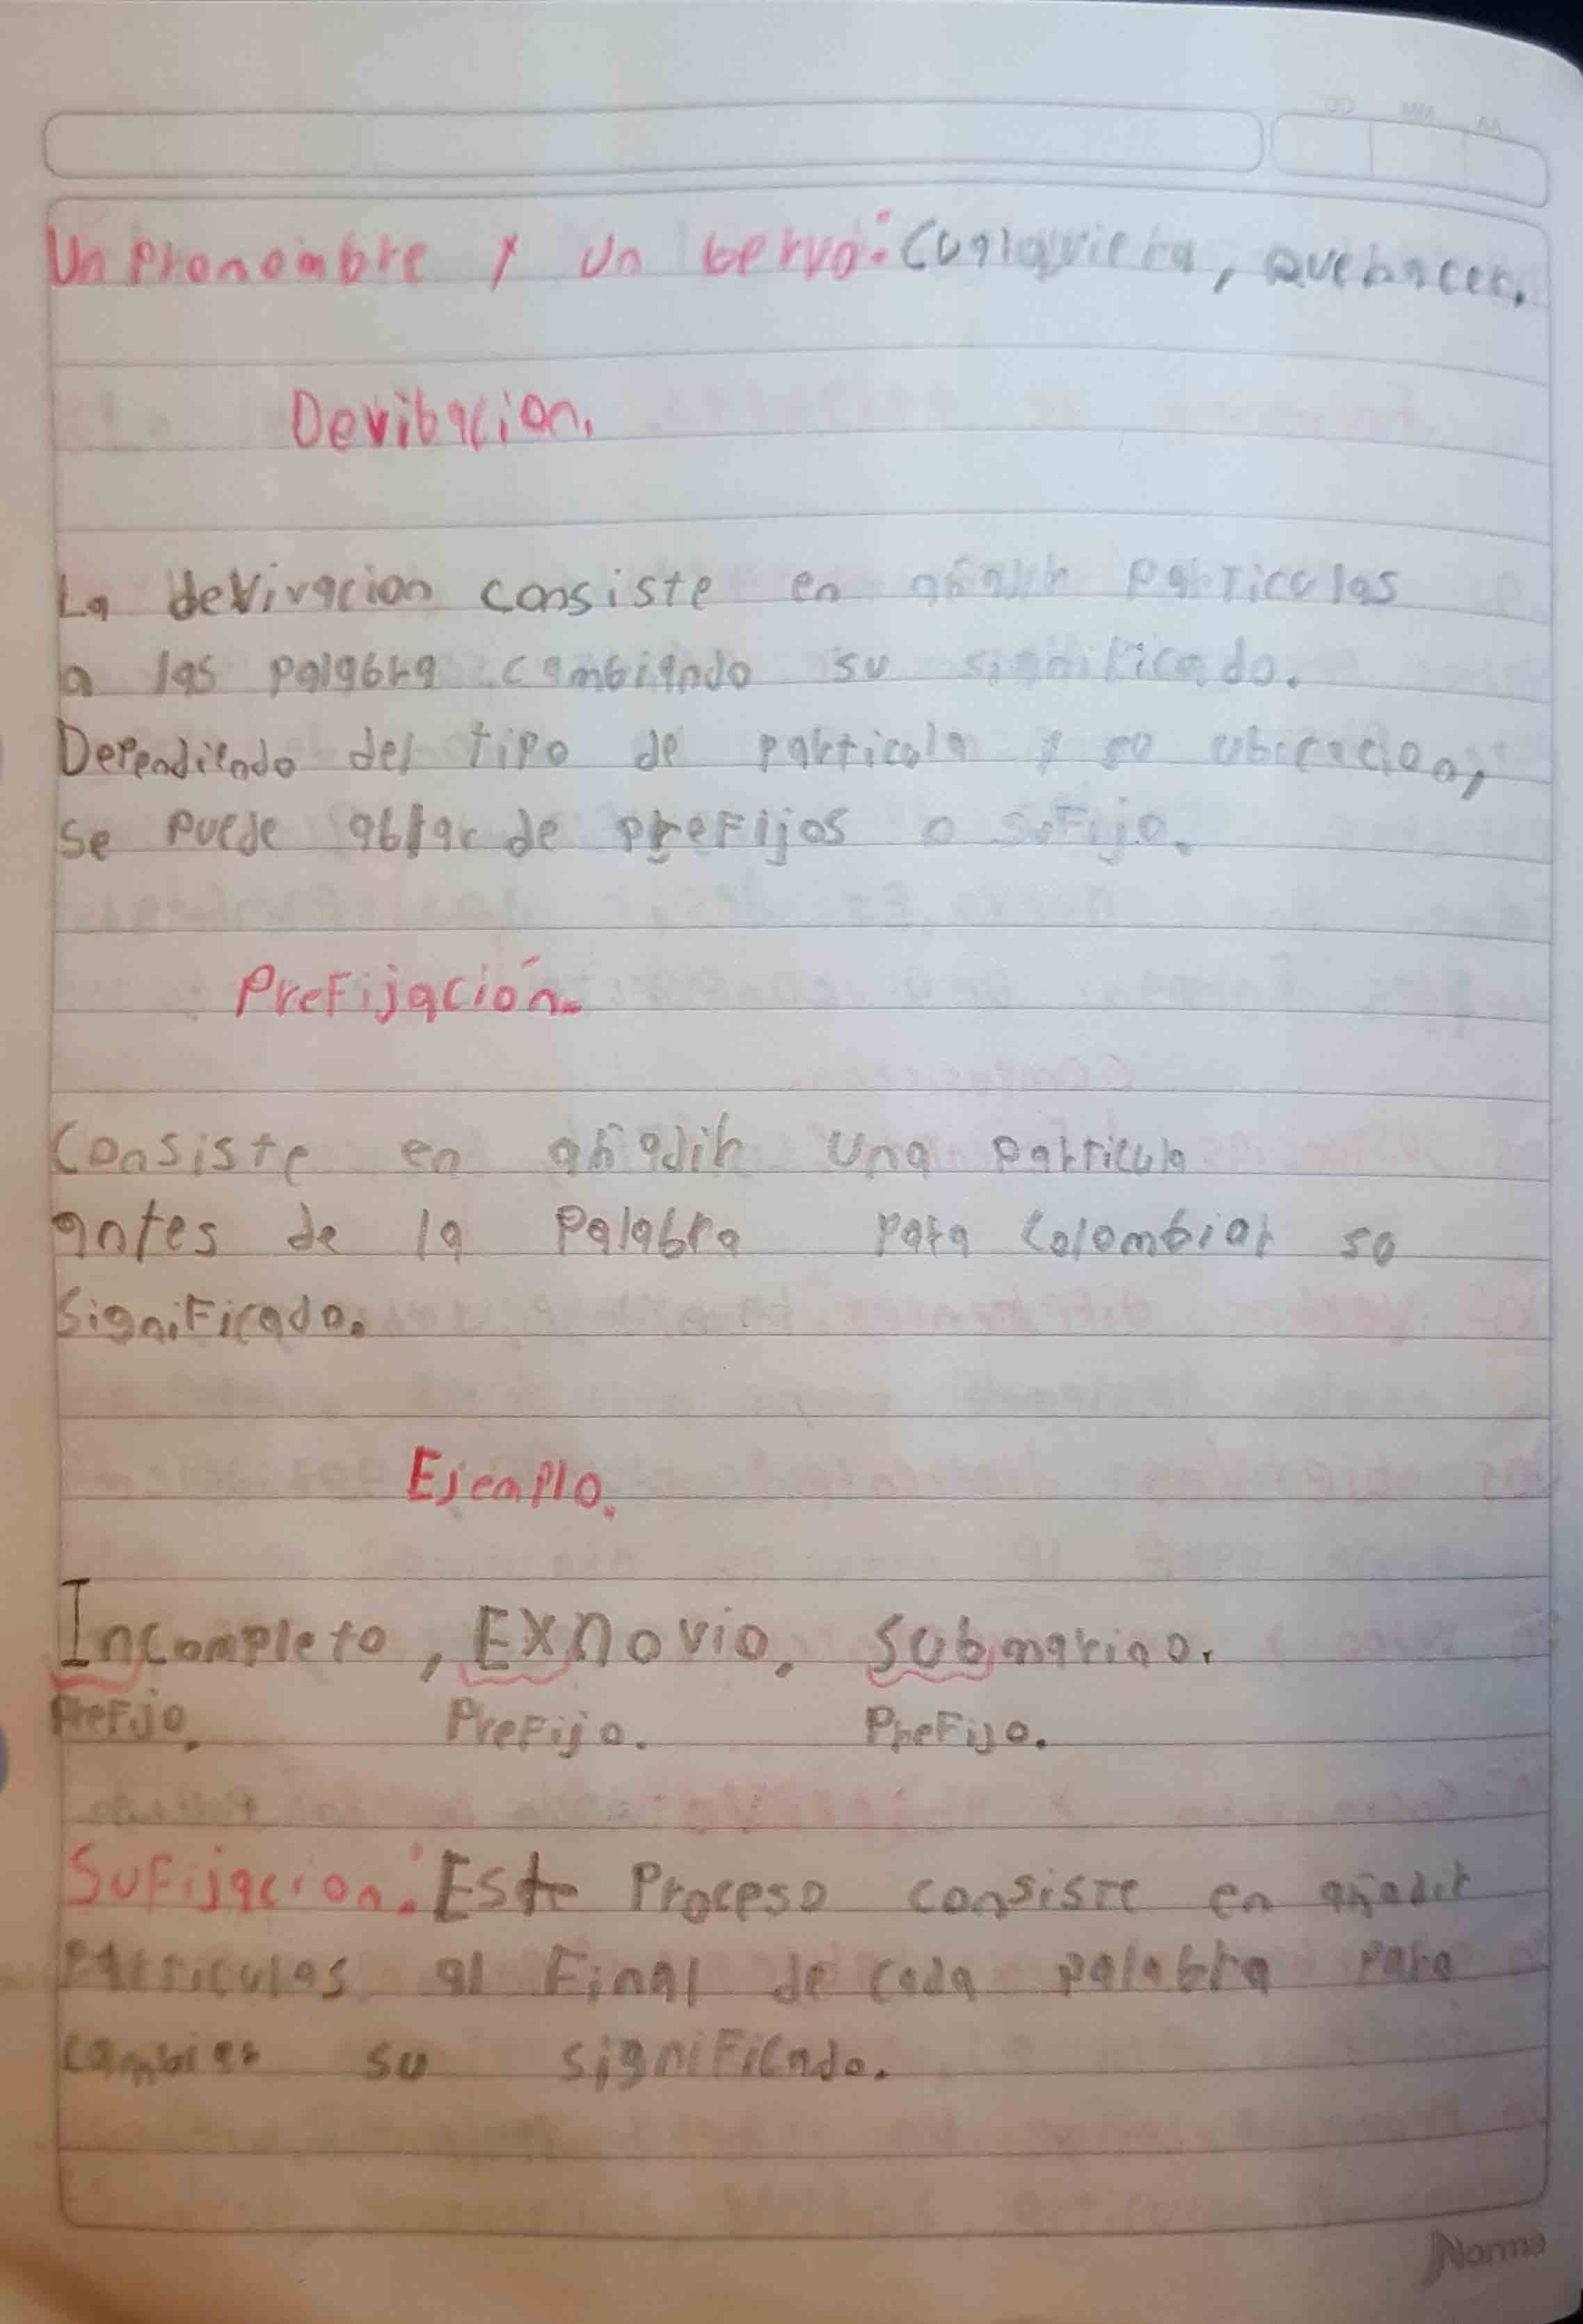 Un Pronombre y un bervo: Cualquiera, Quehacer.
Devibacion.
La devivacion consiste en añadir particulas
a las palabra cambiando su significado.
Dependiendo del tipo de particula y su ubicacion,
se puede ablar de prefijos o sufijo.
Prefijación.
Consiste en añadir una particula
antes de la Palabra para Colombiar su
significado.
Ejemplo.
Incompleto, EXnovio, submarino.
Prefjo. Prefijo. Prefijo.
Sufijacion: Este Proceso consiste en añadir
Particulas al Final de cada palabra para
cambiar su significado.
Norma